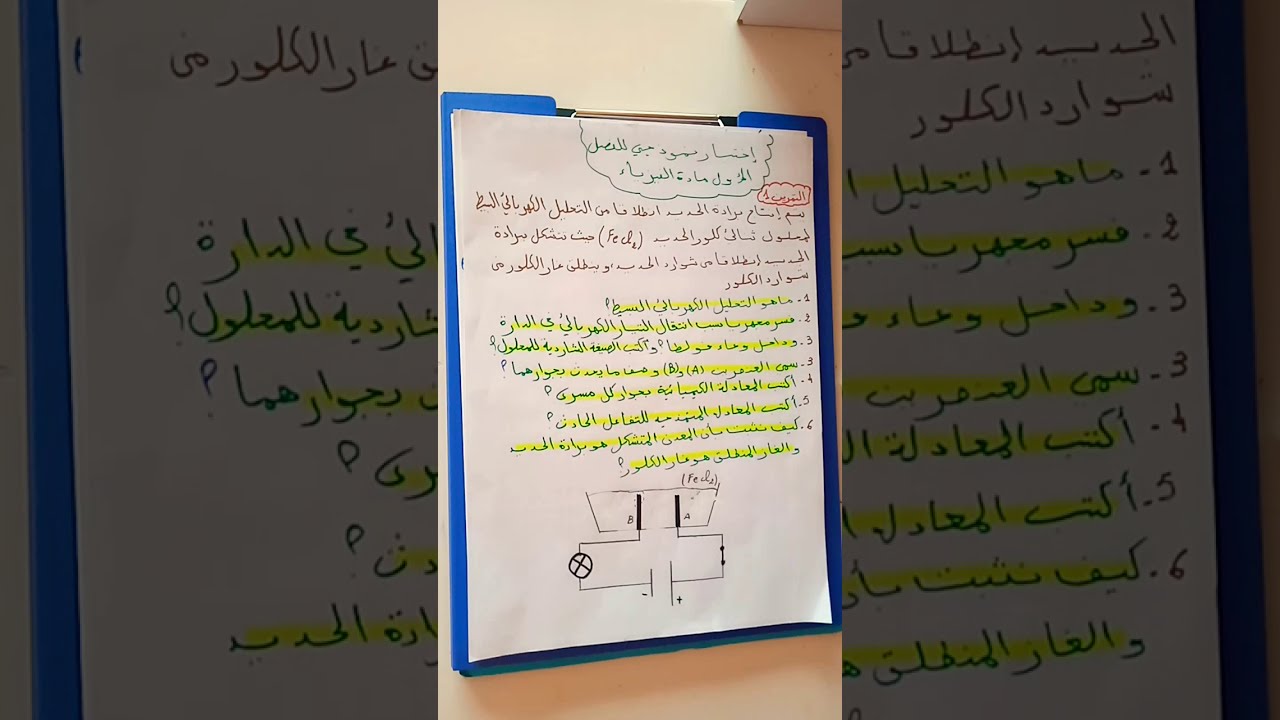 إختبار نموذجي للفصل
الأول مادة الفيزياء
التمرين 1
يتم إنتاج برادة الحديد انطلاقا من التحليل الكهربائي البسيط
لمحلول ثنائي كلور الحديد (FeCl₂) حيث تتشكل برادة
الحديد إنطلاقا من شوارد الحديد، وينطلق غاز الكلور من
شوارد الكلور
1- ماهو التحليل الكهربائي البسيط؟
2. فسر مجهريا سبب انتقال التيار الكهربائي في الدارة
3. وداخل وعاء فولطا؟ وأكتب الصيغة الشاردية للمحلول؟
3- سمى العنصرين (A) و(B) وصف ما يحدث بجوارهما؟
4- أكتب المعادلة الكيميائية بجوار كل مسرى؟
5. أكتب المعادلة المنمذجة للتفاعل الحادث؟
6. كيف نثبت بأن المعدن المتشكل هو برادة الحديد
والغاز المنطلق هو غاز الكلور؟
(FeCl₂)
B A
- +